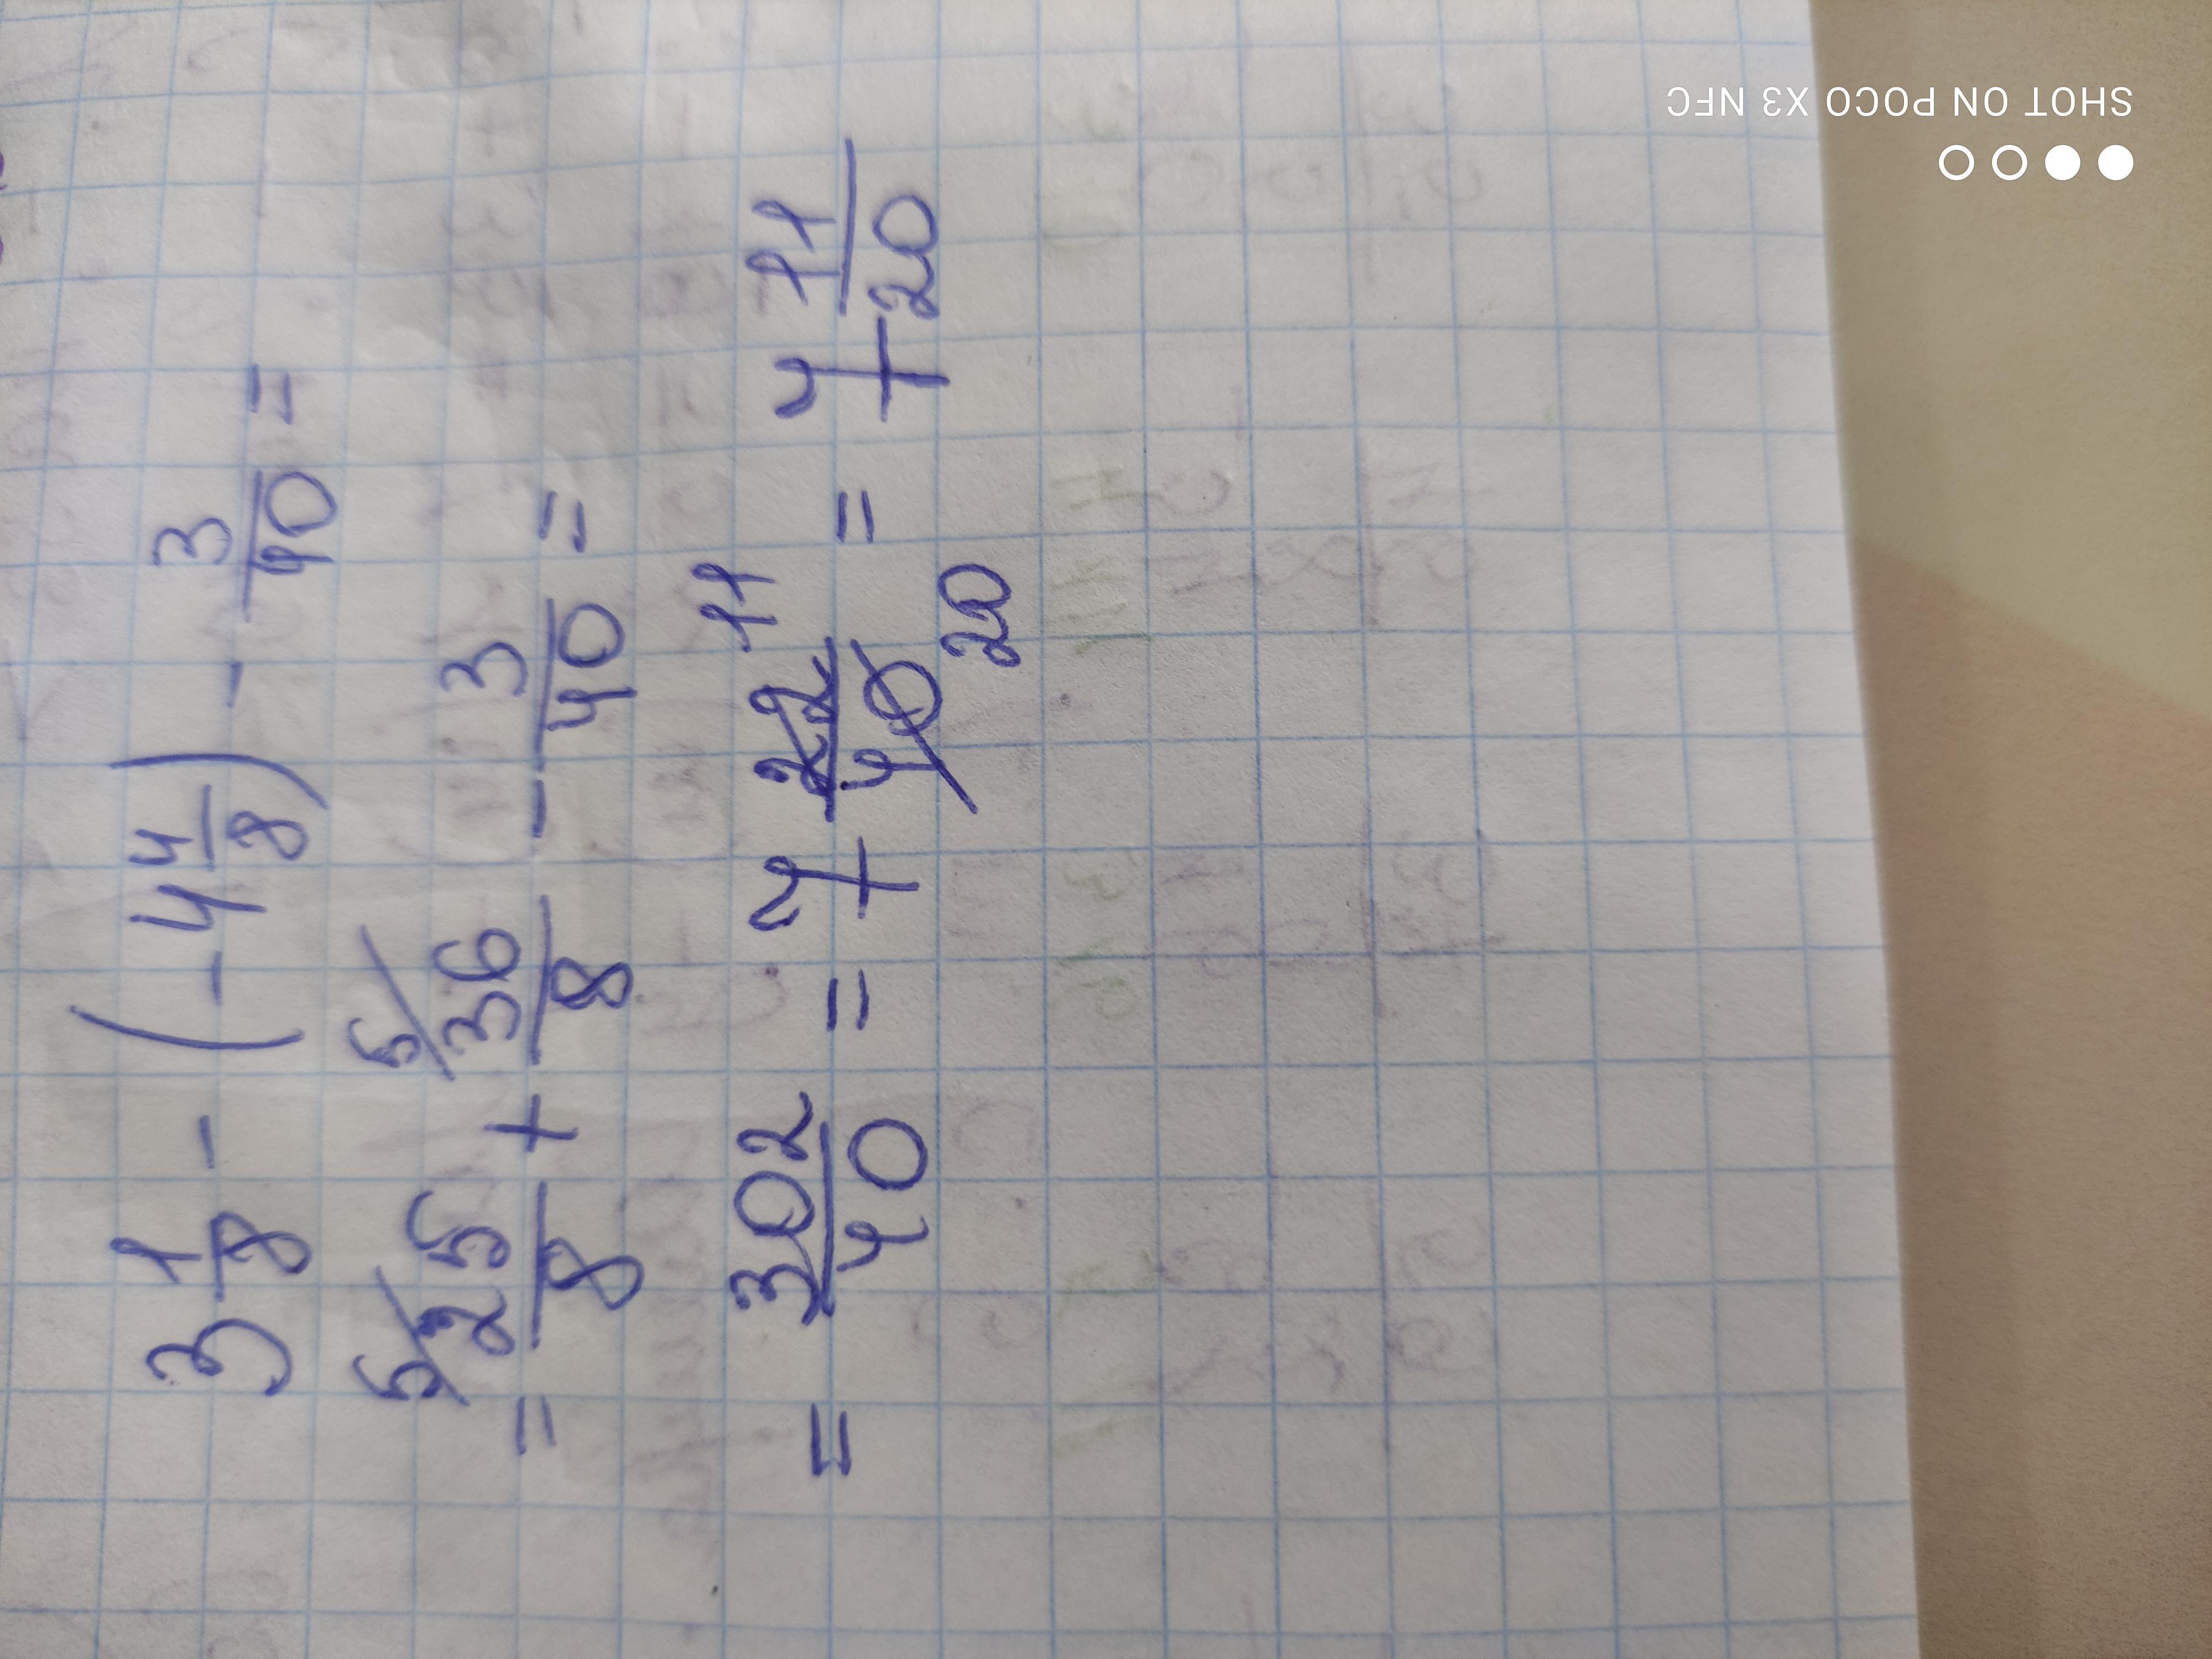 3 1/8 - (-4 4/8) - 3/40 =
= 5/ 25/8 + 5/ 36/8 - 3/40 =
= 302/40 = 7 22/40 11 20 = 7 11/20
SHOT ON POCO X3 NFC